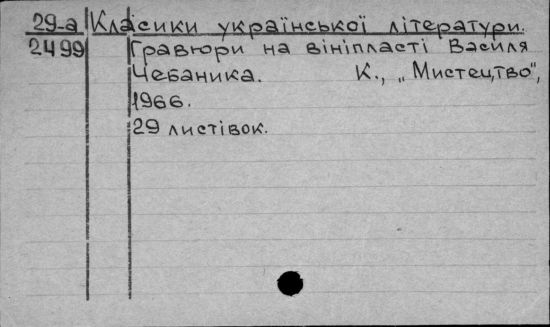 29-а Класики української літератури.
2499 Гравюри на вініпласті Василя
Чебаника. К., „Мистецтво",
1966.
29 листівок.